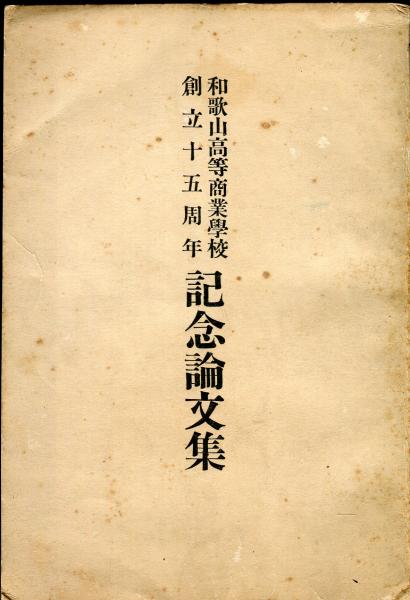 和歌山高等商業學校
創立十五周年
記念論文集